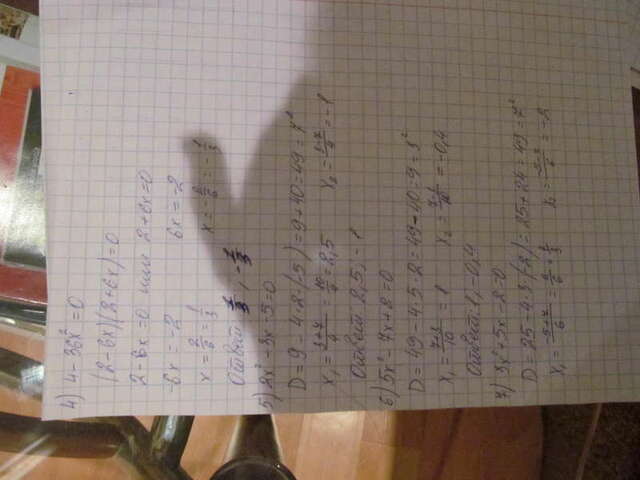 4) 4-36x²=0
(2-6x)(2+6x)=0
2-6x=0 или 2+6x=0
-6x=-2 6x=-2
x=2/6=1/3 x=-2/6=-1/3
Ответ: 1/3, -1/3
5) 2x²-3x-5=0
D=9-4·2·(-5)=9+40=49=7²
x₁=3+7/4=10/4=2,5 x₂=3-7/4=-1
Ответ: 2,5, -1
6) 5x²-7x+2=0
D=49-4·5·2=49-40=9=3²
x₁=7+3/10=1 x₂=
Ответ: 1, -0,4
7) 3x²+5x-2=0
D=25-4·3·(-2)=25+24=49=7²
x₁=-5+7/6=2/6=1/3 x₂=-5-7/6=-2